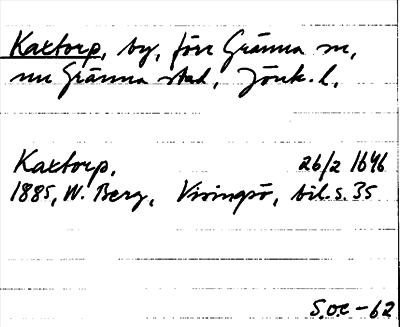 Kaxtorp, by, förr Gränna sn,
nu Gränna stad, Jönk. l.
Kaxtorp. 26/2 1646
1885, W. Berg, Visingsö, bil. s. 35
S.O.E-62